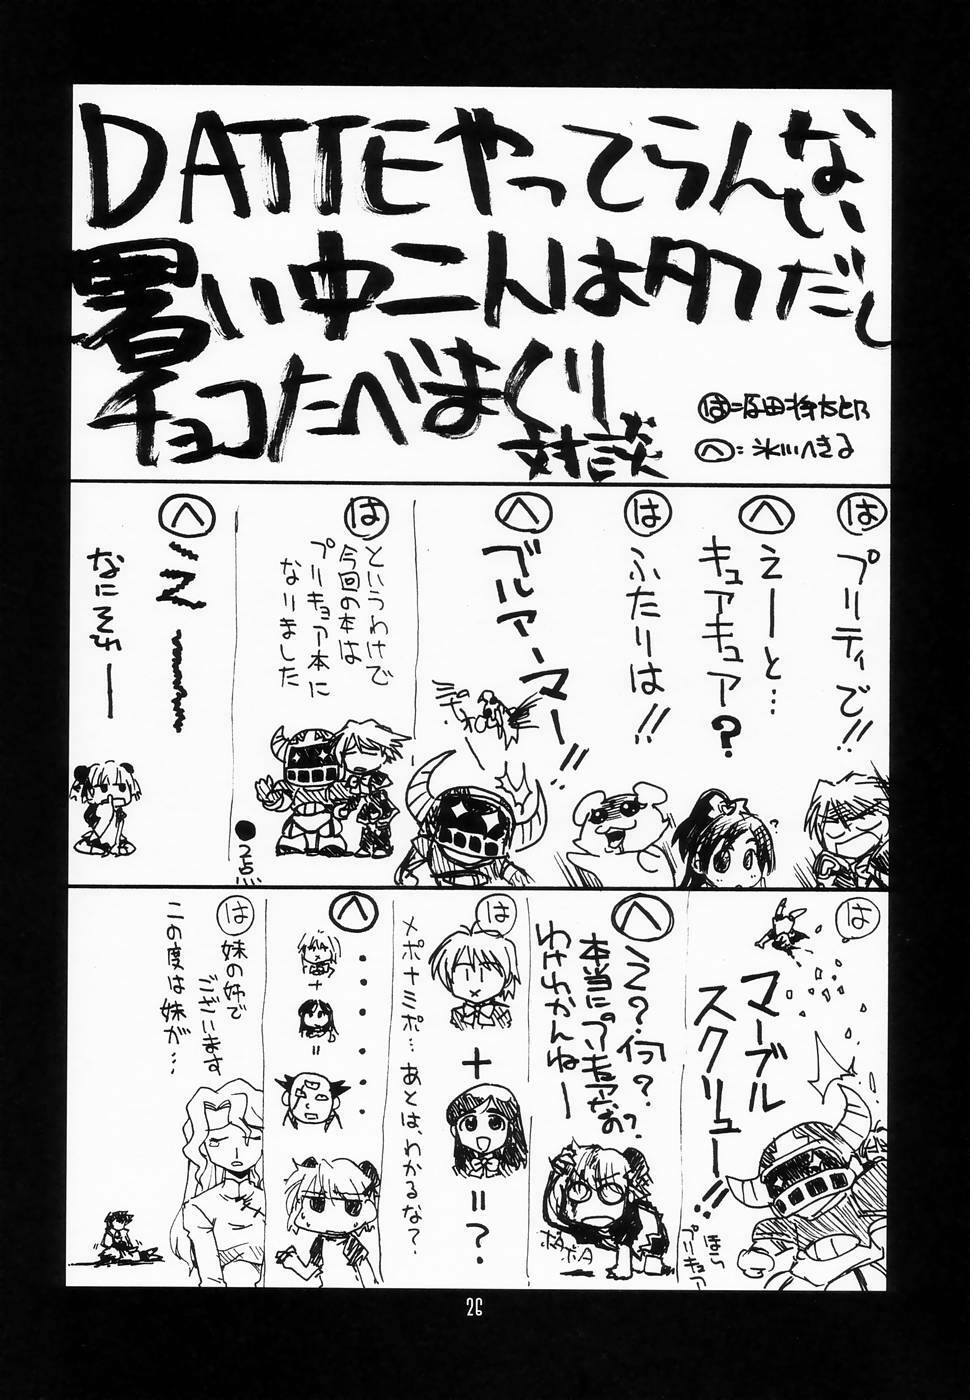 DATTEやってらんない
暑い中こんはタフだし
チョコたべまくり
対談
は:原田将太郎
へ:氷川へきる
は
プリティで!!
へ
えーと…
キュアキュア?
は
ふたりは!!
へ
ブルアーマー!!
は
というわけで
今回の本は
プリキュア本に
なりました
へ
え〜
なにそれー
は
マーブル
スクリュー!!
ほら
プリキュア
へ
え?何?
本当にプリキュアなの?
わけわかんねー
は
+
=?
メポナミポ…あとは、わかるな?
へ
・・・・・・・・
+
=
は
妹の姉で
ございます
この度は妹が…
26